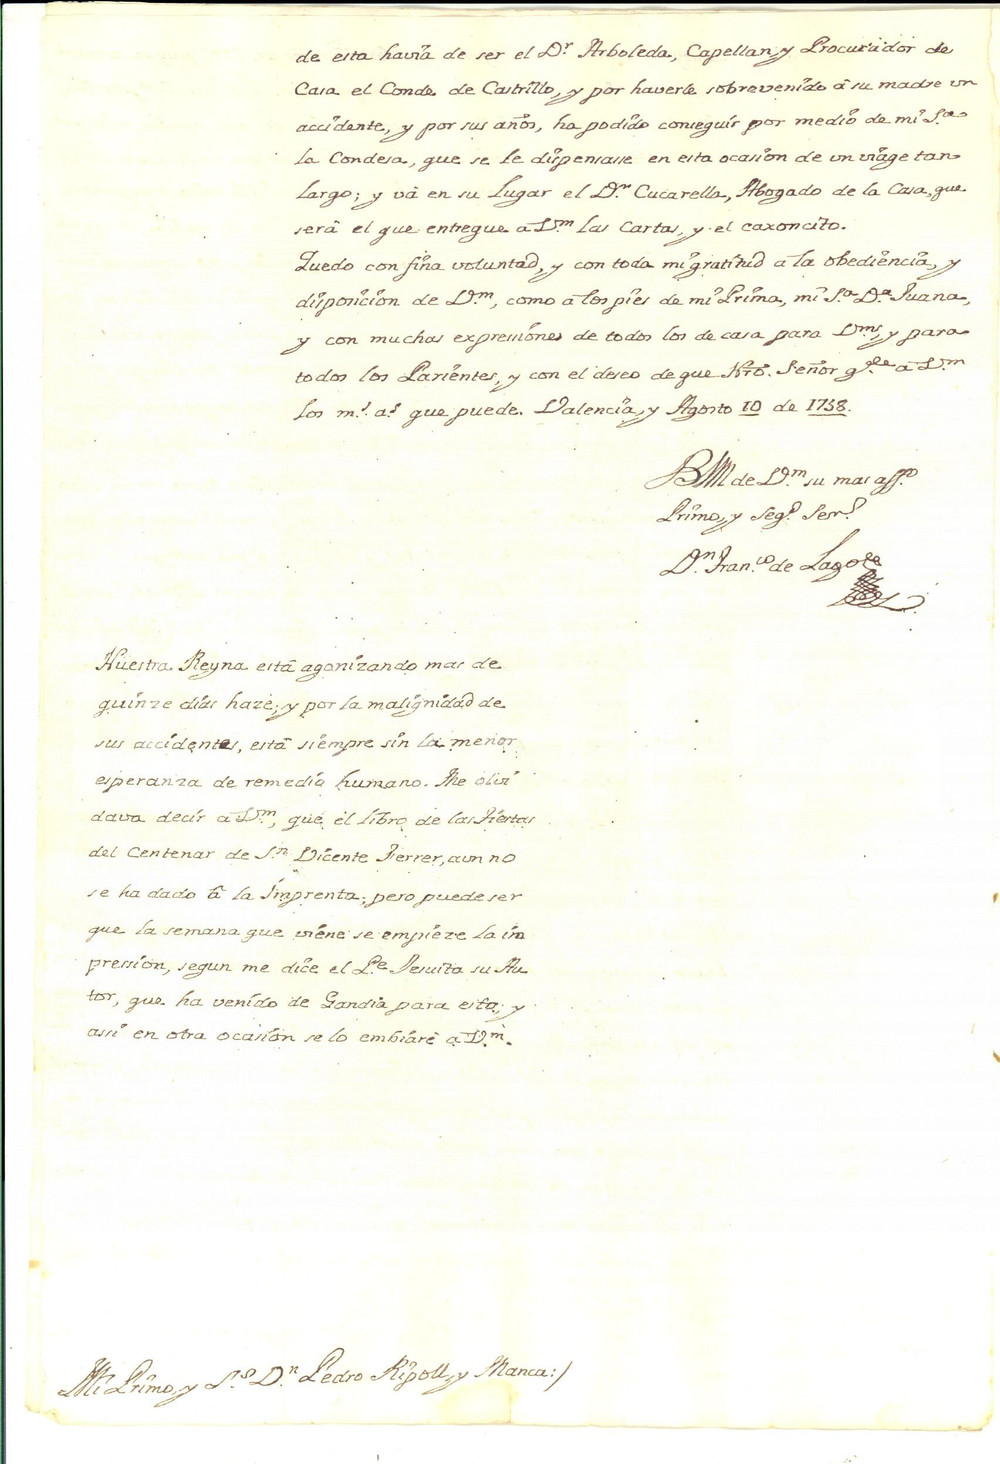 de esta havia de ser el Dr. Arboleda, Capellan, y Procurador de
Casa el Conde de Castrillo, y por haverle sobrevenido â su madre un
accidente, y por sus años, ha podido conseguir por medio de mi Sra.
la Condesa, que se le dispensasse en esta ocasion de un viage tan
largo; y và en su lugar el Dr. Cucarella, Abogado de la Casa, que
serà el que entregue a Vm. las Cartas, y el caxoncito.
Quedo con fina voluntad, y con toda mi gratitud a la obediencia, y
disposicion de Vm., como a los pies de mi Prima, mi Sa. Da. Juana,
y con muchas expressiones de todos los de casa para Vms., y para
todos los Parientes, y con el deseo de que Ntro. Señor gde. a Vm.
los ms. as. que puede. Valencia, y Agosto 10 de 1758.
BLM de Vm. su mas affo.
Primo, y Segro. Serr.
Dn. Franco. de Lagoza
Nuestra Reyna està agonizando mas de
quinze dias haze; y por la malignidad de
sus accidentes, està siempre sin la menor
esperanza de remedio humano. Me olvi
dava decir a Vm., que el libro de las Fiestas
del Centenar de Sn. Vicente Ferrer, aun no
se ha dado â la Imprenta; pero puede ser
que la semana que viene se empieze la im
pression, segun me dice el Pe. Jesuita su Au
tor, que ha venido de Gandia para esta; y
assi en otra ocasion se lo embiarè a Vm.
Mi Primo, y Sr. Dn. Pedro Ripoll, y Manca:)